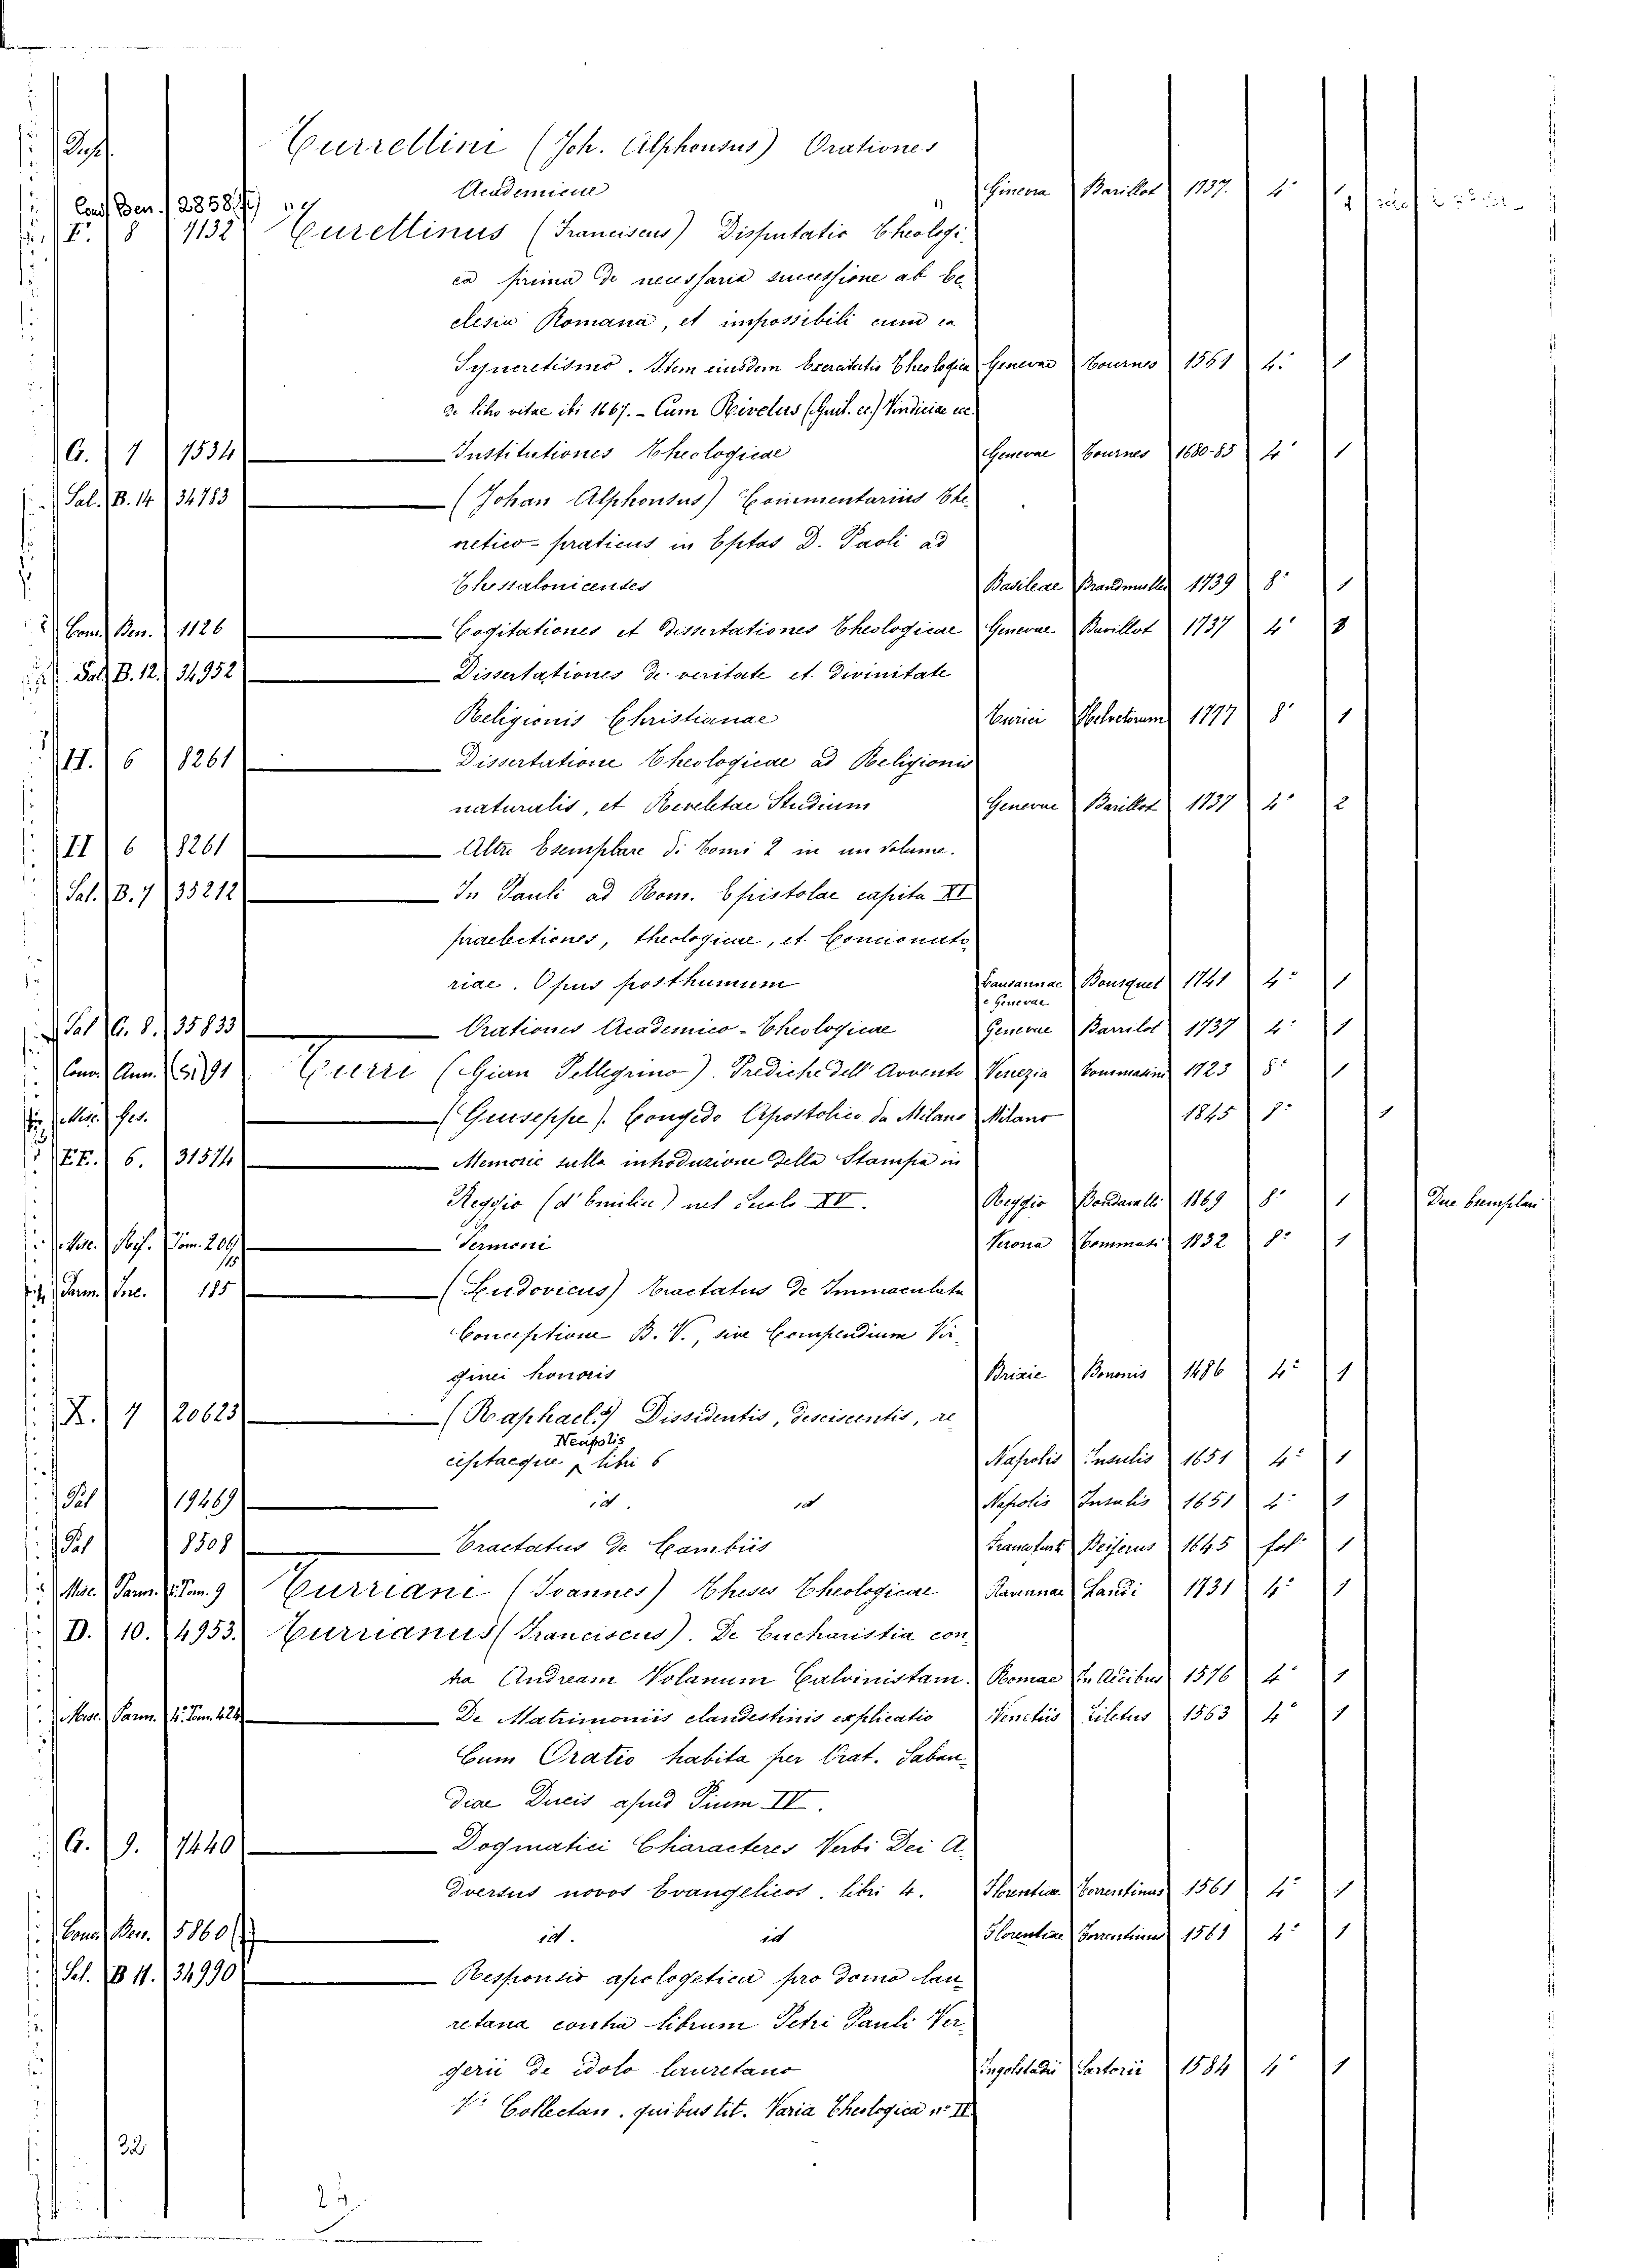 Turrettini (Joh. Alphonsus) Orationes
Academicae Ginevra Barillot 1737. 4°
Conv. Ben. 2858
F. 8 7132 Turettinus (Franciscus) Disputatio Theologi-
ca prima de necessaria secessione ab Ec-
clesia Romana, et impossibili cum ea
Syncretismo. Item eiusdem Exercitatio Theologica Genevae Tournes 1661 4° 1
de libro vitae ibi 1667. - Cum Rivetus (Guil. ec.) Vindiciae ecc.
G. 7 7534 Institutiones Theologicae Genevae Tournes 1680-85 4° 1
Sal. B. 14 34783 (Johan Alphonsus) Commentarius The-
oretico-praticus in Eptas D. Paoli ad
Thessalonicenses Basileae Brandmuller 1739 8° 1
Conv. Ben. 1126 Cogitationes et dissertationes Theologicae Genevae Barillot 1737 4°
Sal. B. 12. 34952 Dissertationes de veritate et divinitate
Religionis Christianae Turici Helvetorum 1777 8° 1
H. 6 8261 Dissertatione Theologicae ad Religionis
naturalis, et Revelatae Studium Genevae Barillot 1737 4° 2
II 6 8261 Altro Esemplare di Tomi 2 in un volume.
Sal. B. 7 35212 In Pauli ad Rom. Epistolae capita XI
praelectiones, theologicae, et Concionato
riae. Opus posthumum Lausannae Bousquet 1741 4° 1
e Genevae
Sal G. 8. 35833 Orationes Academico-Theologicae Genevae Barrilot 1737 4° 1
Conv. Ann. 5191 Turri (Gian Pellegrino). Prediche dell' Avvento Venezia Tommasini 1723 8° 1
Misc. Ges. (Giuseppe). Congedo Apostolico da Milano Milano 1845 8° 1
EE. 6. 31574 Memorie sulla introduzione della Stampa in
Reggio (d'Emilia) nel Secolo XV. Reggio Bondavalli 1869 8° 1 Due Esemplari
Misc. Tom. 209 Sermoni Verona Tommasi 1832 8° 1
Parm. Inc. 185 (Ludovicus) Tractatus de Immaculata
Conceptione B. V., sive Compendium Vir-
ginei honoris Brixie Bononis 1486 4° 1
X. 7 20623 (Raphael.) Dissidentis, desciscentis, re
Neapolis
ceptaeque libri 6 Napolis Insulis 1651 4° 1
Pal 19469 id. id Napolis Insulis 1651 4° 1
Pal 8508 Tractatus de Cambiis Francfurt Beiferus 1645 fol. 1
Misc. Parm. Tom. 9 Turriani (Ioannes) Theses Theologicae Ravennae Landi 1731 4° 1
D. 10. 4953. Turrianus (Franciscus). De Eucharistia con-
tra Andream Volanum Calvinistam. Romae In Aedibus 1576 4° 1
Misc. Parm. 4° Tom. 424 De Matrimoniis clandestinis explicatio Venetiis Ziletus 1563 4° 1
Cum Oratio habita per Orat. Sabau-
diae Ducis apud Pium IV.
G. 9. 7440 Dogmatici Characteres Verbi Dei A-
dversus novos Evangelicos. libri 4. Florentiae Torrentinus 1561 4° 1
Conv. Ben. 5860 id. id Florentiae Torrentinus 1561 4° 1
Sal. B 11. 34990 Responsio apologetica pro domo lau-
retana contra librum Petri Pauli Ver-
gerii de idolo lauretano Ingolstadii Sartorii 1584 4° 1
V. Collectan. quibus tit. Varia Theologica n° II
32